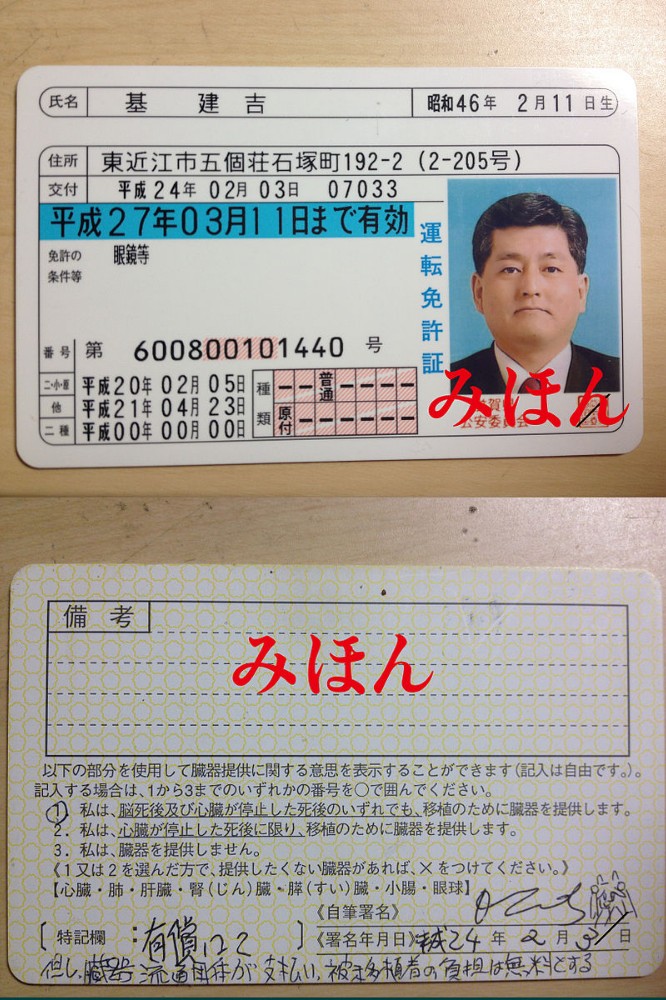 氏名 基 建吉 昭和46年 2月11日生
住所 東近江市五個荘石塚町192-2 (2-205号)
交付 平成24年02月03日 07033
平成27年03月11日まで有効
免許の条件等 眼鏡等
運転免許証
番号 第 600800101440 号
二・小・原 平成20年02月05日
他 平成21年04月23日
二種 平成00年00月00日
種類 普通
原付
公安委員会
みほん
備考
みほん
以下の部分を使用して臓器提供に関する意思を表示することができます(記入は自由です。)。
記入する場合は、1から3までのいずれかの番号を○で囲んでください。
1. 私は、脳死後及び心臓が停止した死後のいずれでも、移植のために臓器を提供します。
2. 私は、心臓が停止した死後に限り、移植のために臓器を提供します。
3. 私は、臓器を提供しません。
《1又は2を選んだ方で、提供したくない臓器があれば、×をつけてください。》
【心臓・肺・肝臓・腎(じん)臓・膵(すい)臓・小腸・眼球】
《自筆署名》
[特記欄:有償にて
《署名年月日》平成24年2月3日
但し、臓器流通自体が支払い、被移植者の負担は無料とする